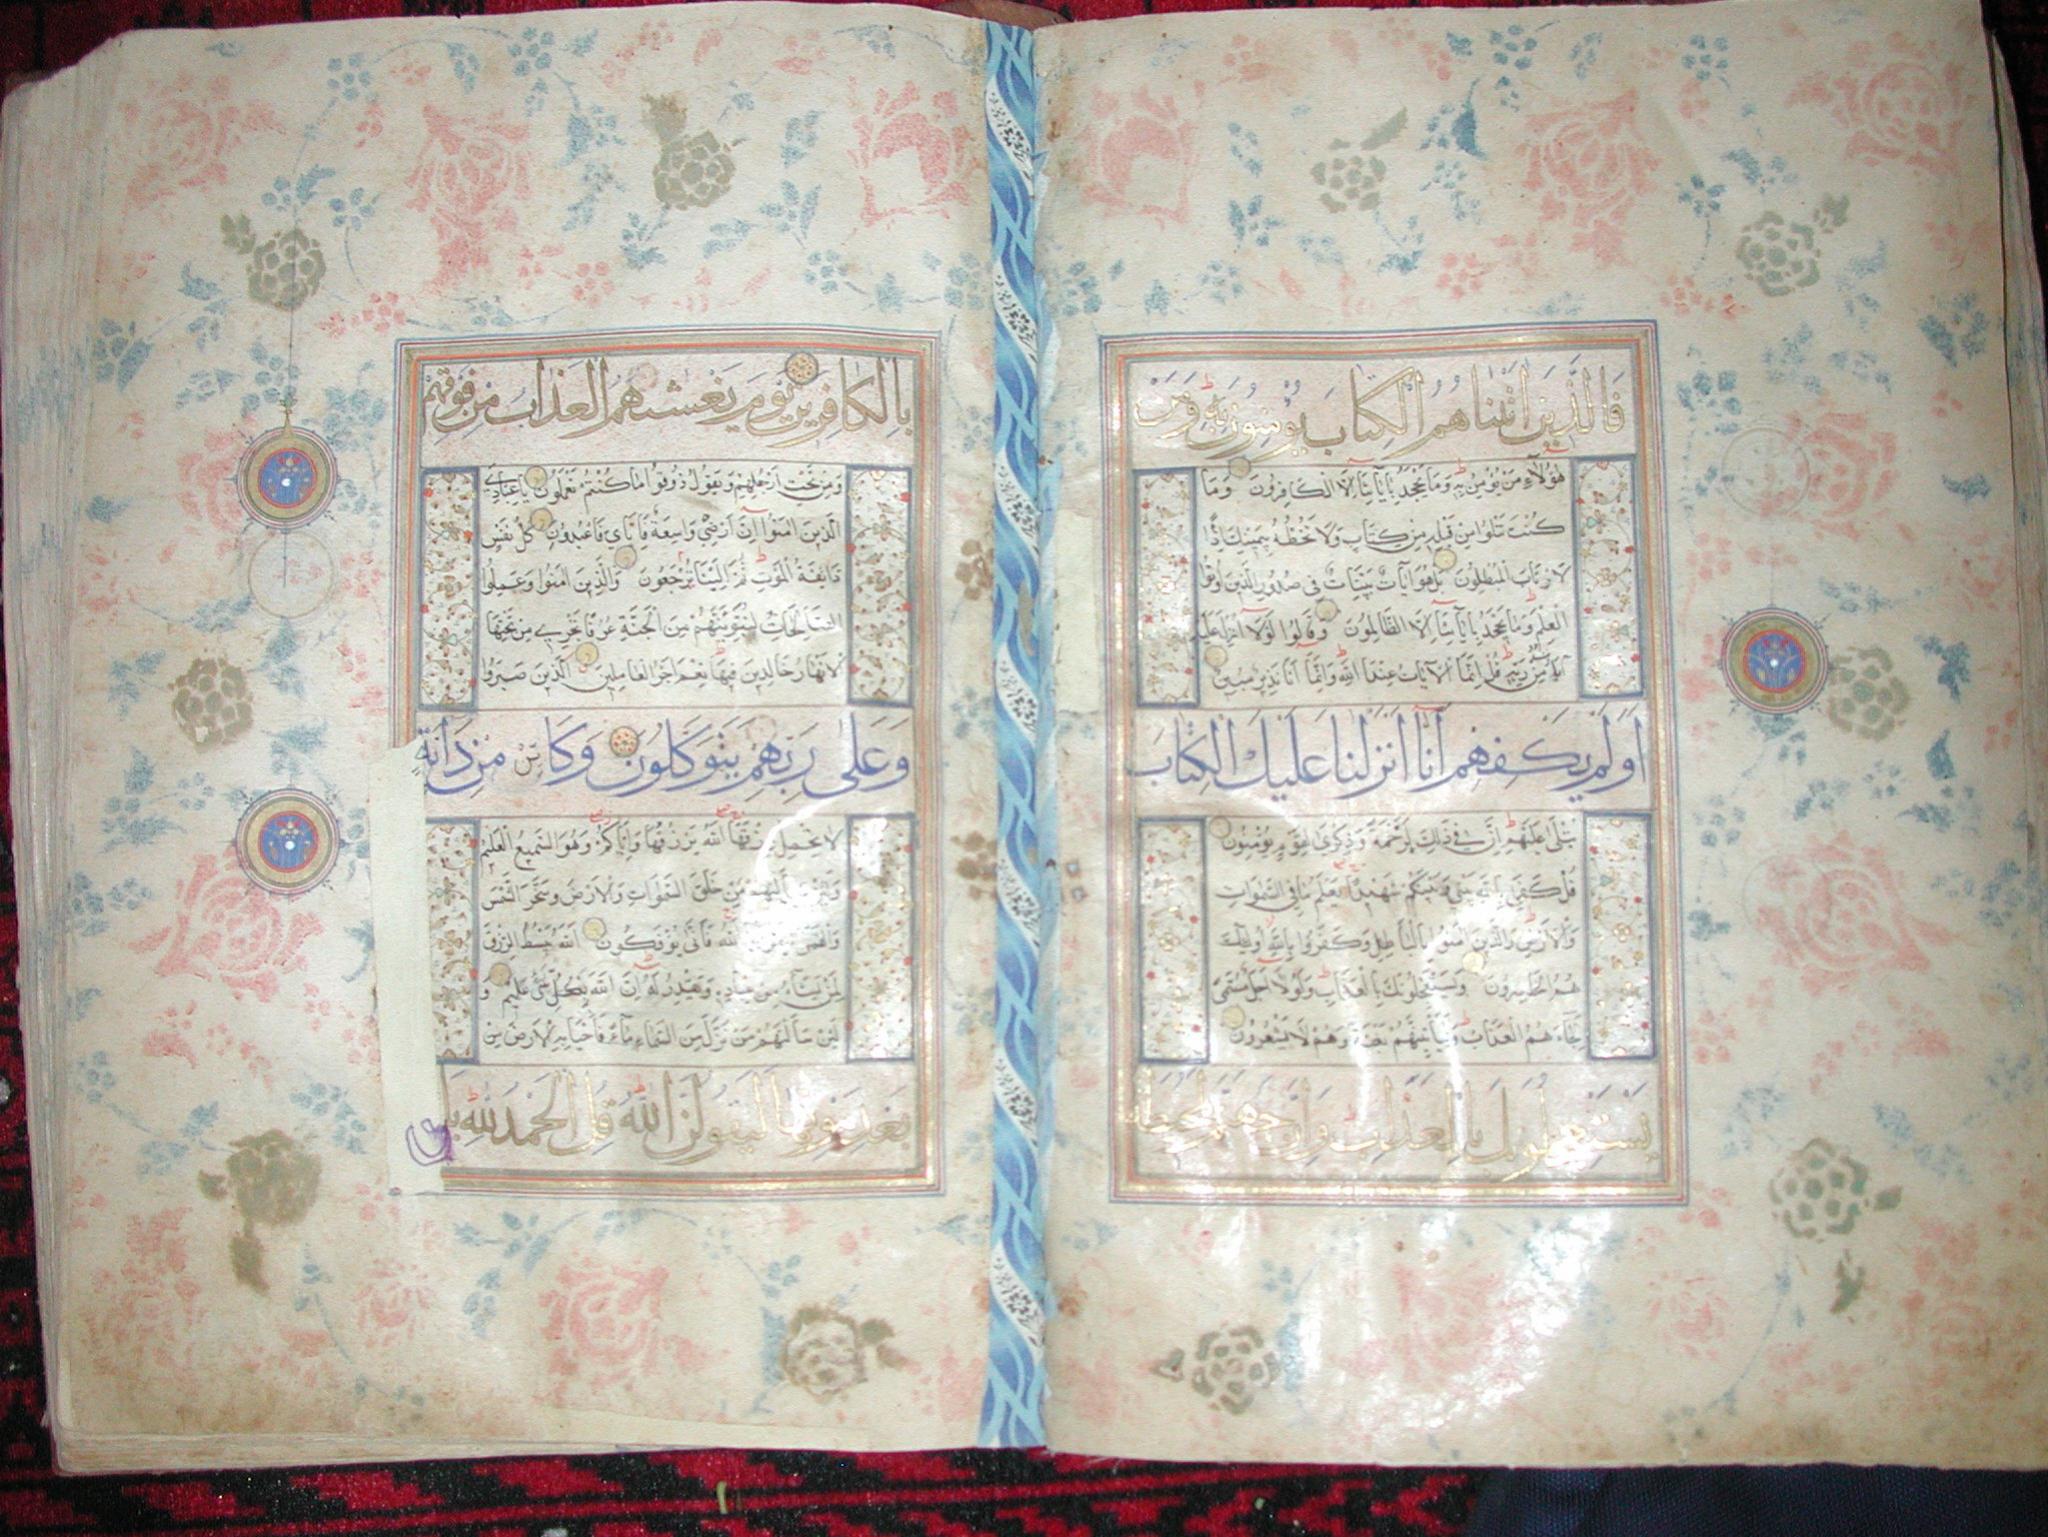 فَالَّذِينَ اٰتَيْنَاهُمُ الْكِتَابَ يُؤْمِنُونَ بِهِ وَمِنْ
هٰؤُلَاءِ مَنْ يُؤْمِنُ بِهِ وَمَا يَجْحَدُ بِآيَاتِنَا اِلَّا الْكَافِرُونَ وَمَا
كُنْتَ تَتْلُوا مِنْ قَبْلِهِ مِنْ كِتَابٍ وَلَا تَخُطُّهُ بِيَمِينِكَ اِذًا
لَارْتَابَ الْمُبْطِلُونَ بَلْ هُوَ اٰيَاتٌ بَيِّنَاتٌ فِي صُدُورِ الَّذِينَ اُوتُوا
الْعِلْمَ وَمَا يَجْحَدُ بِآيَاتِنَا اِلَّا الظَّالِمُونَ وَقَالُوا لَوْلَا اُنْزِلَ عَلَيْهِ
اٰيَاتٌ مِنْ رَبِّهِ قُلْ اِنَّمَا الْاٰيَاتُ عِنْدَ اللّٰهِ وَاِنَّمَا اَنَا نَذِيرٌ مُبِينٌ
اَوَلَمْ يَكْفِهِمْ اَنَّا اَنْزَلْنَا عَلَيْكَ الْكِتَابَ
يُتْلٰى عَلَيْهِمْ اِنَّ فِي ذٰلِكَ لَرَحْمَةً وَذِكْرٰى لِقَوْمٍ يُؤْمِنُونَ
قُلْ كَفٰى بِاللّٰهِ بَيْنِي وَبَيْنَكُمْ شَهِيدًا يَعْلَمُ مَا فِي السَّمٰوَاتِ
وَالْاَرْضِ وَالَّذِينَ اٰمَنُوا بِالْبَاطِلِ وَكَفَرُوا بِاللّٰهِ اُولٰئِكَ
هُمُ الْخَاسِرُونَ وَيَسْتَعْجِلُونَكَ بِالْعَذَابِ وَلَوْلَا اَجَلٌ مُسَمًّى
لَجَاءَهُمُ الْعَذَابُ وَلَيَأْتِيَنَّهُمْ بَغْتَةً وَهُمْ لَا يَشْعُرُونَ
يَسْتَعْجِلُونَكَ بِالْعَذَابِ وَاِنَّ جَهَنَّمَ لَمُحِيطَةٌ
بِالْكَافِرِينَ يَوْمَ يَغْشٰيهُمُ الْعَذَابُ مِنْ فَوْقِهِمْ
وَمِنْ تَحْتِ اَرْجُلِهِمْ وَيَقُولُ ذُوقُوا مَا كُنْتُمْ تَعْمَلُونَ يَا عِبَادِيَ
الَّذِينَ اٰمَنُوا اِنَّ اَرْضِي وَاسِعَةٌ فَاِيَّايَ فَاعْبُدُونِ كُلُّ نَفْسٍ
ذَائِقَةُ الْمَوْتِ ثُمَّ اِلَيْنَا تُرْجَعُونَ وَالَّذِينَ اٰمَنُوا وَعَمِلُوا
الصَّالِحَاتِ لَنُبَوِّئَنَّهُمْ مِنَ الْجَنَّةِ غُرَفًا تَجْرِي مِنْ تَحْتِهَا
الْاَنْهَارُ خَالِدِينَ فِيهَا نِعْمَ اَجْرُ الْعَامِلِينَ الَّذِينَ صَبَرُوا
وَعَلٰى رَبِّهِمْ يَتَوَكَّلُونَ وَكَاَيِّنْ مِنْ دَابَّةٍ
لَا تَحْمِلُ رِزْقَهَا اللّٰهُ يَرْزُقُهَا وَاِيَّاكُمْ وَهُوَ السَّمِيعُ الْعَلِيمُ
وَلَئِنْ سَاَلْتَهُمْ مَنْ خَلَقَ السَّمٰوَاتِ وَالْاَرْضَ وَسَخَّرَ الشَّمْسَ
وَالْقَمَرَ لَيَقُولُنَّ اللّٰهُ فَاَنّٰى يُؤْفَكُونَ اَللّٰهُ يَبْسُطُ الرِّزْقَ
لِمَنْ يَشَاءُ مِنْ عِبَادِهِ وَيَقْدِرُ لَهُ اِنَّ اللّٰهَ بِكُلِّ شَيْءٍ عَلِيمٌ وَ
لَئِنْ سَاَلْتَهُمْ مَنْ نَزَّلَ مِنَ السَّمَاءِ مَاءً فَاَحْيَا بِهِ الْاَرْضَ مِنْ
بَعْدِ مَوْتِهَا لَيَقُولُنَّ اللّٰهُ قُلِ الْحَمْدُ لِلّٰهِ بَلْ